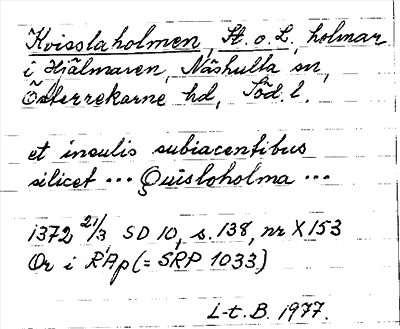 Kvisslaholmen, St. o. L., holmar
i Hjälmaren, Näshulta sn,
Österrekarne hd, Söd. l.
et insulis subiacentibus
silicet ... Quisloholma ...
1372 21/3 SD 10, s. 138, nr X 153
Or i RAp (= SRP 1033)
L-t. B. 1977.